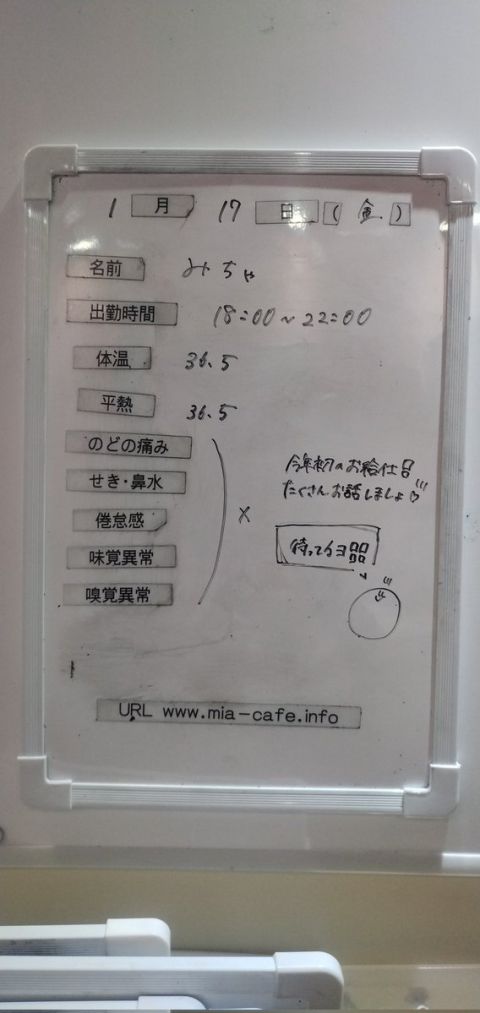 1月17日(金)
名前 みちゃ
出勤時間 18:00~22:00
体温 36.5
平熱 36.5
のどの痛み
せき・鼻水
倦怠感 ×
味覚異常
嗅覚異常
今年初のお給仕
たくさんお話しましょ♡
待ってるヨ
URL www.mia-cafe.info